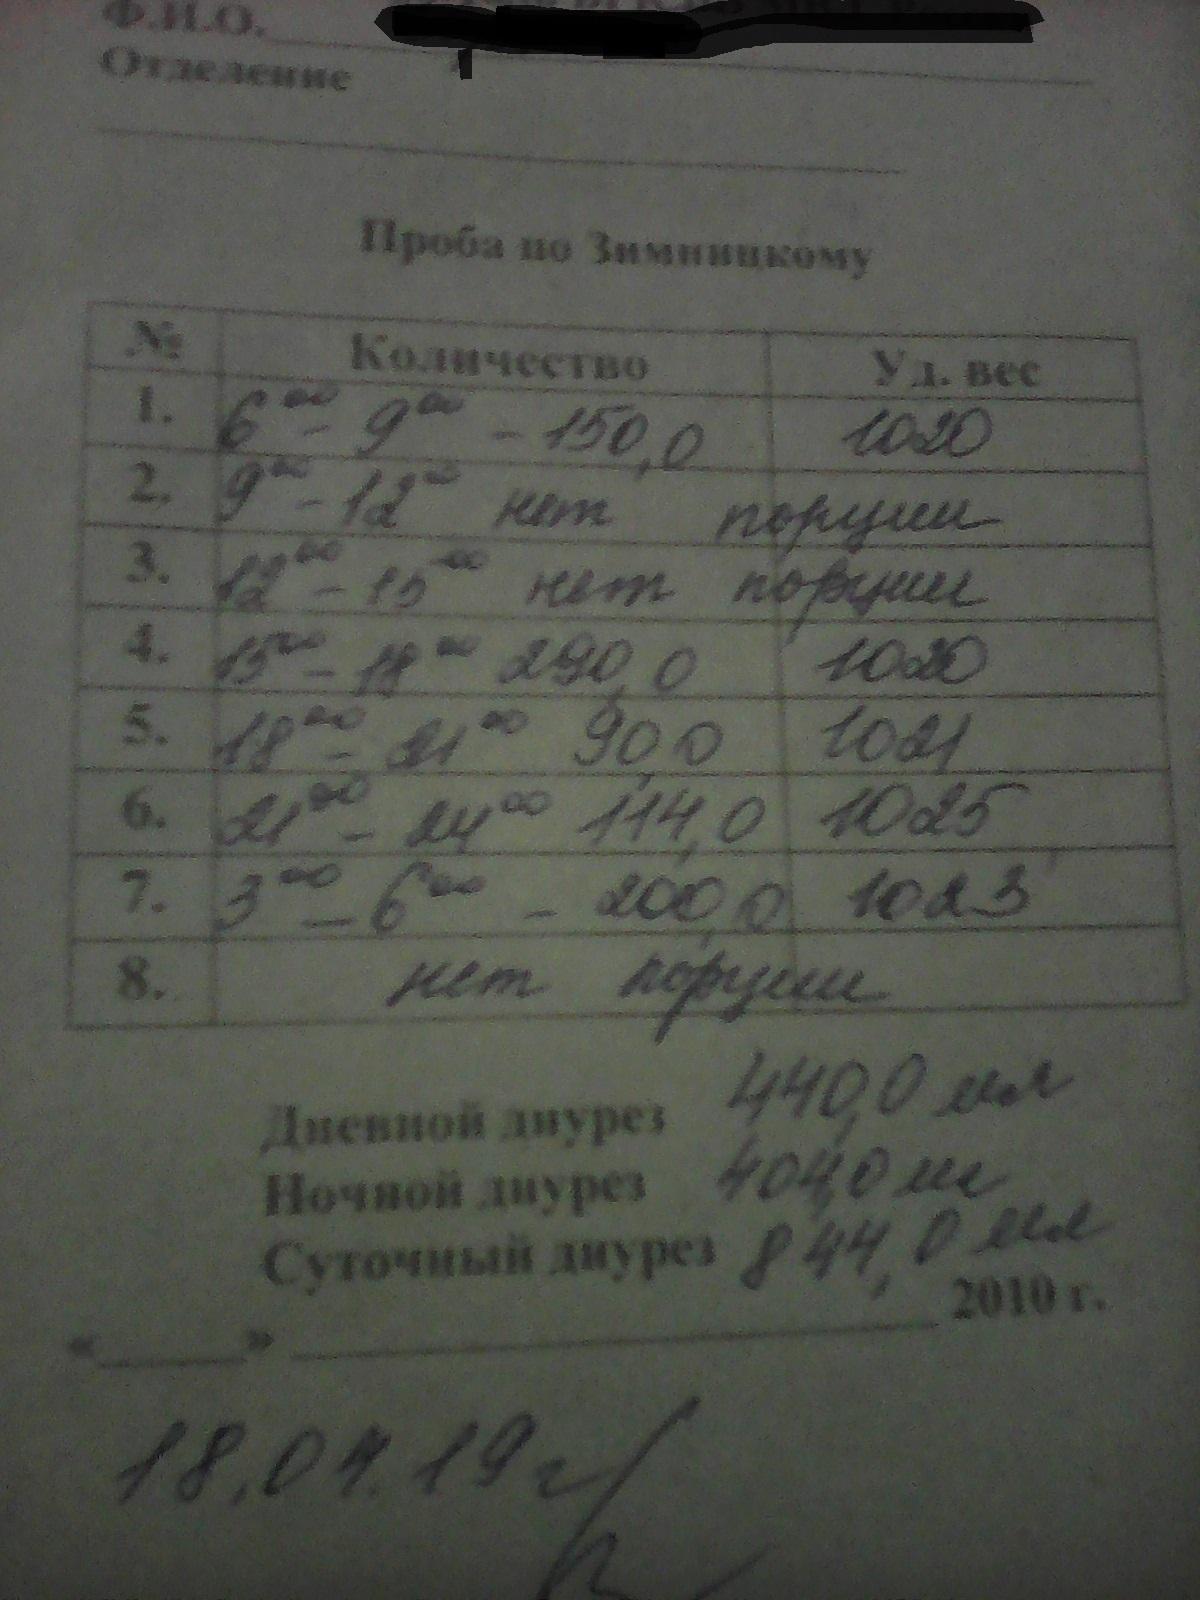 Ф.И.О.
Отделение
Проба по Зимницкому
№ Количество Уд. вес
1. 6⁰⁰ - 9⁰⁰ - 150,0 1020
2. 9⁰⁰ - 12⁰⁰ нет порции
3. 12⁰⁰ - 15⁰⁰ нет порции
4. 15⁰⁰ - 18⁰⁰ 290,0 1020
5. 18⁰⁰ - 21⁰⁰ 90,0 1021
6. 21⁰⁰ - 24⁰⁰ 114,0 1025
7. 3⁰⁰ - 6⁰⁰ - 200,0 1023
8. нет порции
Дневной диурез 440,0 мл
Ночной диурез 404,0 мл
Суточный диурез 844,0 мл
«_____» ____________________ 2010 г.
18.04.19 г